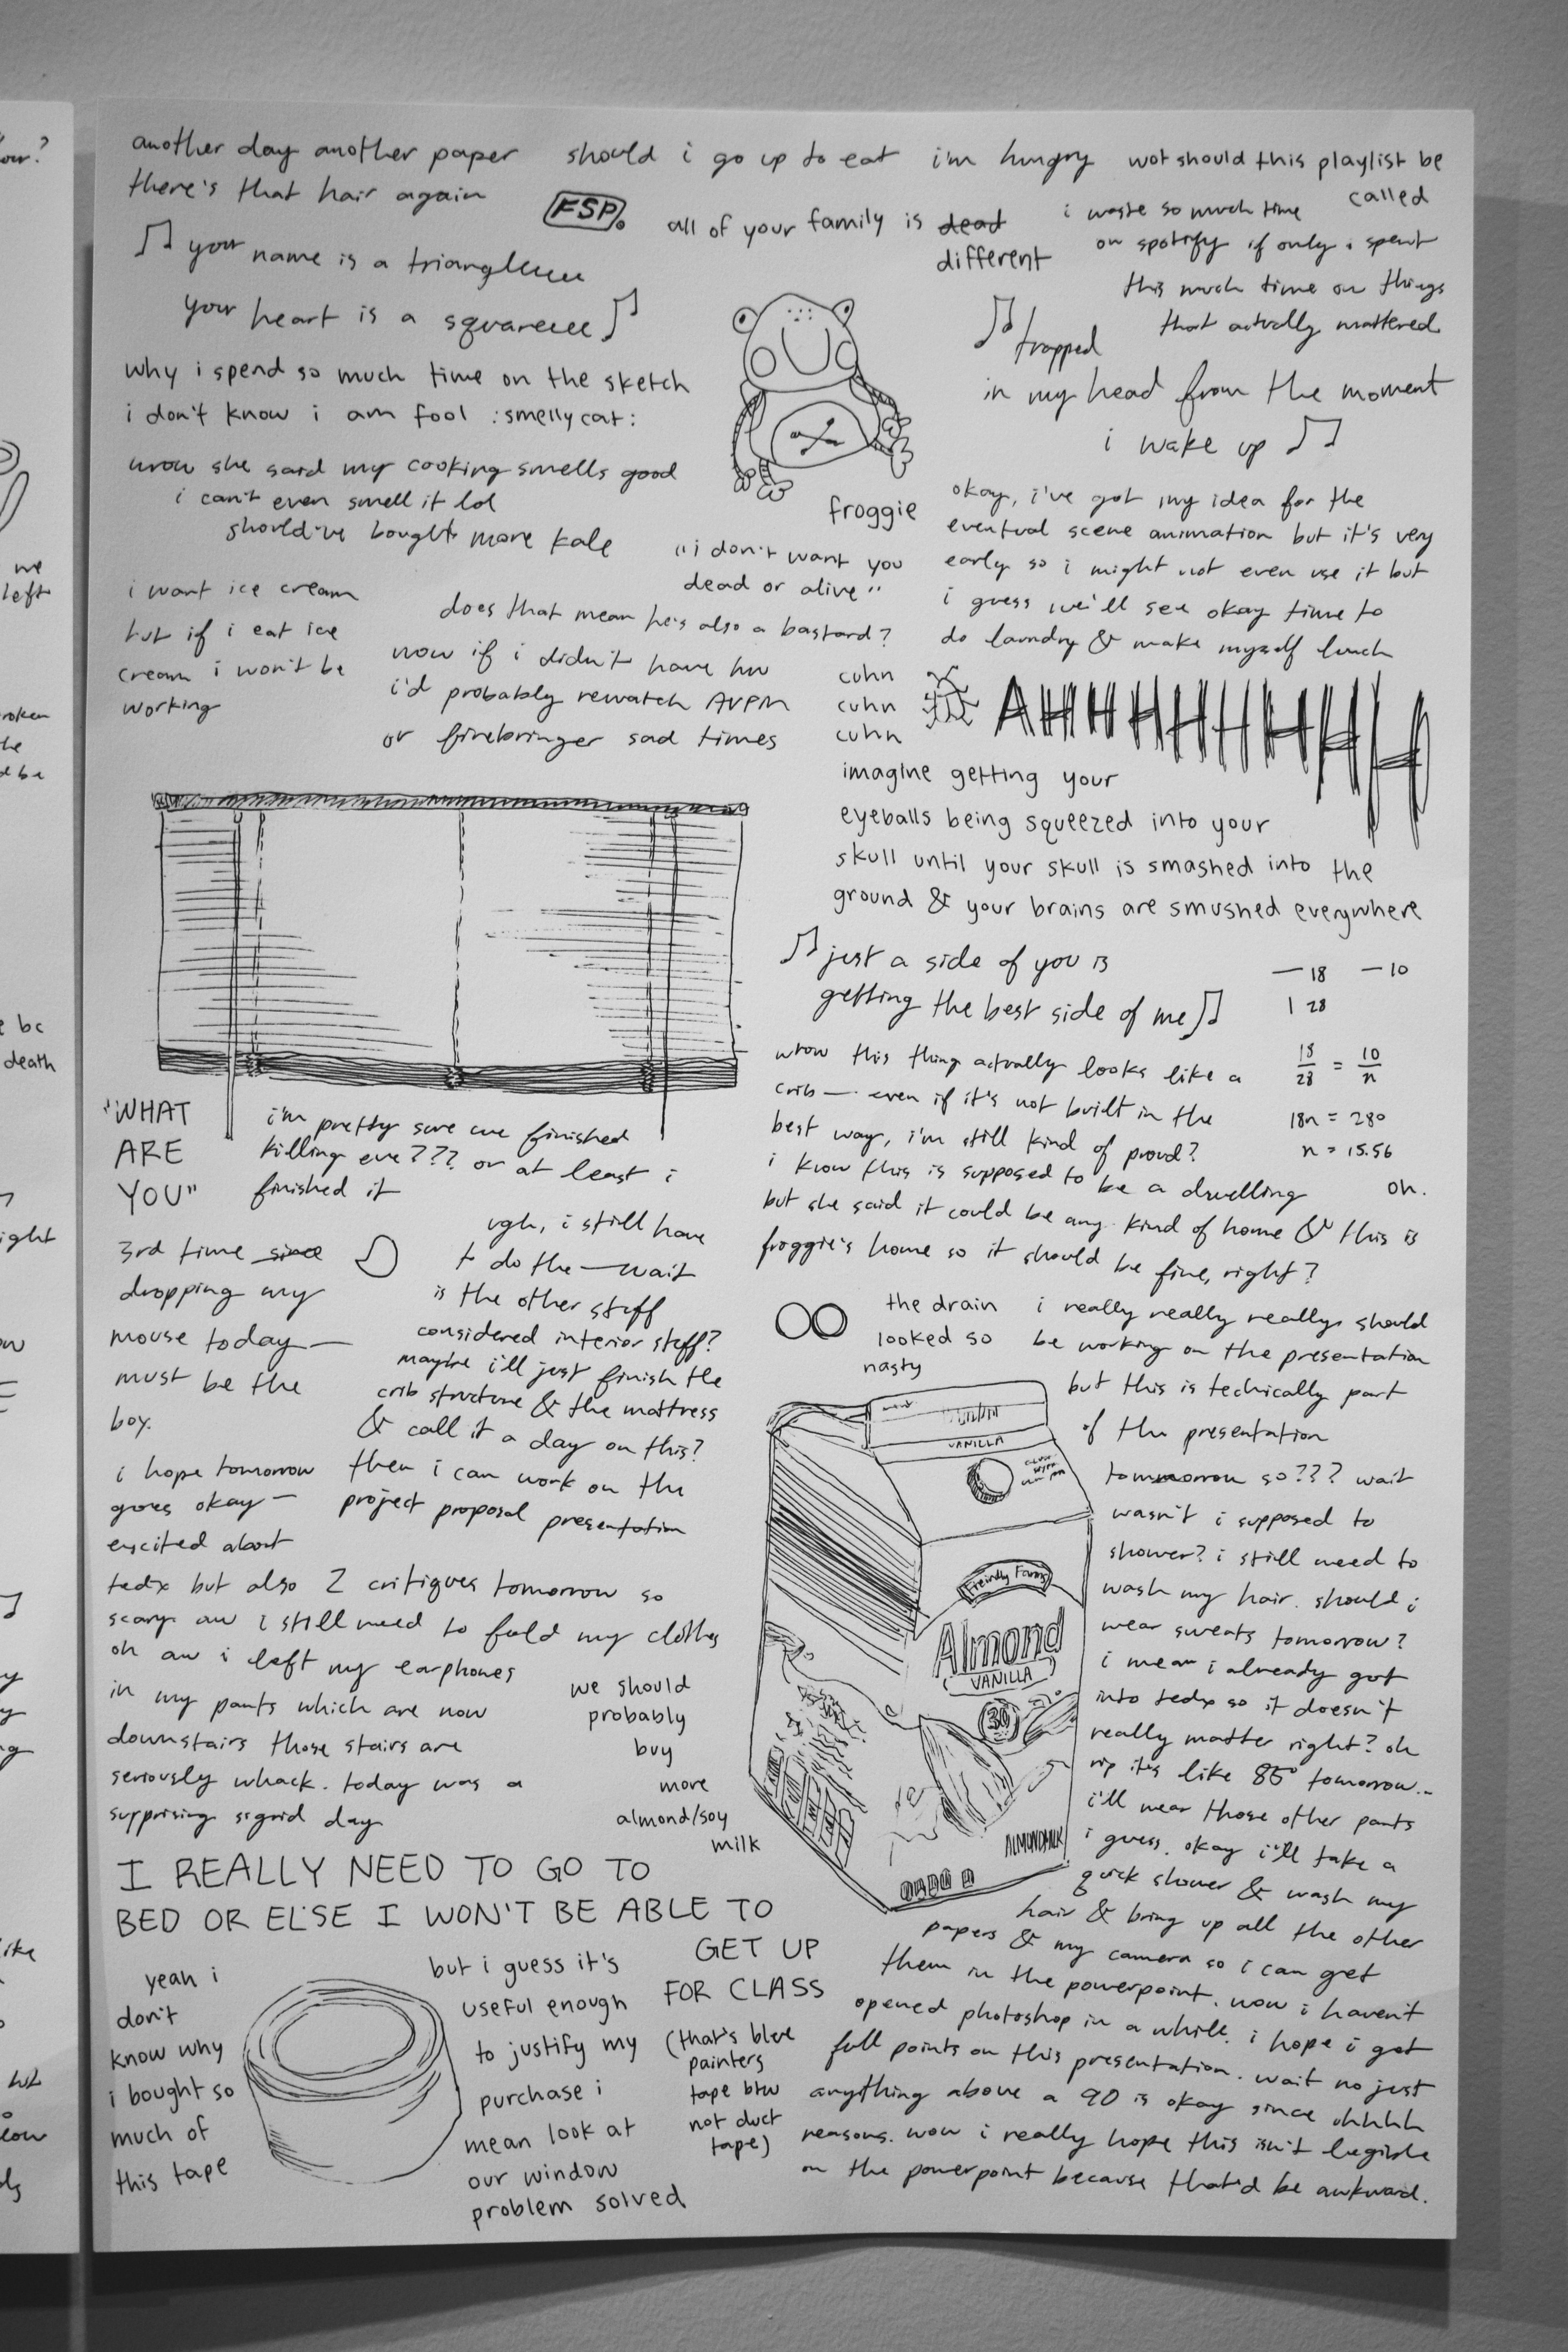 another day another paper
there's that hair again
should i go up to eat
i'm hungry
wot should this playlist be
called
FSP.
all of your family is dead
different
i waste so much time
on spotify if only i spent
this much time on things
that actually mattered
♫ your name is a triangleeeee
your heart is a squareeeee ♫
why i spend so much time on the sketch
i don't know i am fool :smellycat:
wrow she said my cooking smells good
i can't even smell it lol
should've bought more kale
♫ trapped
in my head from the moment
i wake up ♫
froggie
"i don't want you
dead or alive"
does that mean he's also a bastard?
okay, i've got my idea for the
eventual scene animation but it's very
early so i might not even use it but
i guess we'll see okay time to
do laundry & make myself lunch
i want ice cream
but if i eat ice
cream i won't be
working
now if i didn't have hw
i'd probably rewatch AVPM
or firebringer sad times
cuhn
cuhn
cuhn
AHHHHHHHHH
imagine getting your
eyeballs being squeezed into your
skull until your skull is smashed into the
ground & your brains are smushed everywhere
♫ just a side of you is
getting the best side of me ♫
— 18 — 10
1 28
18/28 = 10/n
18n = 280
n = 15.56
oh.
wrow this thing actually looks like a
crib — even if it's not built in the
best way, i'm still kind of proud?
i know this is supposed to be a dwelling
but she said it could be any kind of home & this is
froggie's home so it should be fine, right?
"WHAT
ARE
YOU"
i'm pretty sure we finished
killing eve??? or at least i
finished it
3rd time since
dropping my
mouse today —
must be the
boy.
ugh, i still have
to do the — wait
is the other stuff
considered interior stuff?
maybe i'll just finish the
crib structure & the mattress
& call it a day on this?
then i can work on the
project proposal presentation
i hope tomorrow
goes okay —
excited about
tedx but also 2 critiques tomorrow so
scary aw i still need to fold my clothes
oh aw i left my earphones
in my pants which are now
downstairs those stairs are
seriously whack. today was a
surprising sigrid day
we should
probably
buy
more
almond/soy
milk
the drain
looked so
nasty
VANILLA
Freindly Farms
Almond
VANILLA
30
ALMONDMILK
i really really really should
be working on the presentation
but this is techically part
of the presentation
tommorrow so??? wait
wasn't i supposed to
shower? i still need to
wash my hair. should i
wear sweats tomorrow?
i mean i already got
into tedx so it doesn't
really matter right? oh
rip it's like 85° tomorrow...
i'll wear those other pants
i guess. okay i'll take a
quick shower & wash my
hair & bring up all the other
papers & my camera so i can get
them in the powerpoint. wow i haven't
opened photoshop in a while. i hope i get
full points on this presentation. wait no just
anything above a 90 is okay since uhhhh
reasons. wow i really hope this isn't legible
on the powerpoint because that'd be awkward.
I REALLY NEED TO GO TO
BED OR ELSE I WON'T BE ABLE TO
GET UP
FOR CLASS
yeah i
don't
know why
i bought so
much of
this tape
but i guess it's
useful enough
to justify my
purchase i
mean look at
our window
problem solved
(that's blue
painters
tape btw
not duct
tape)
we
left
bc
death